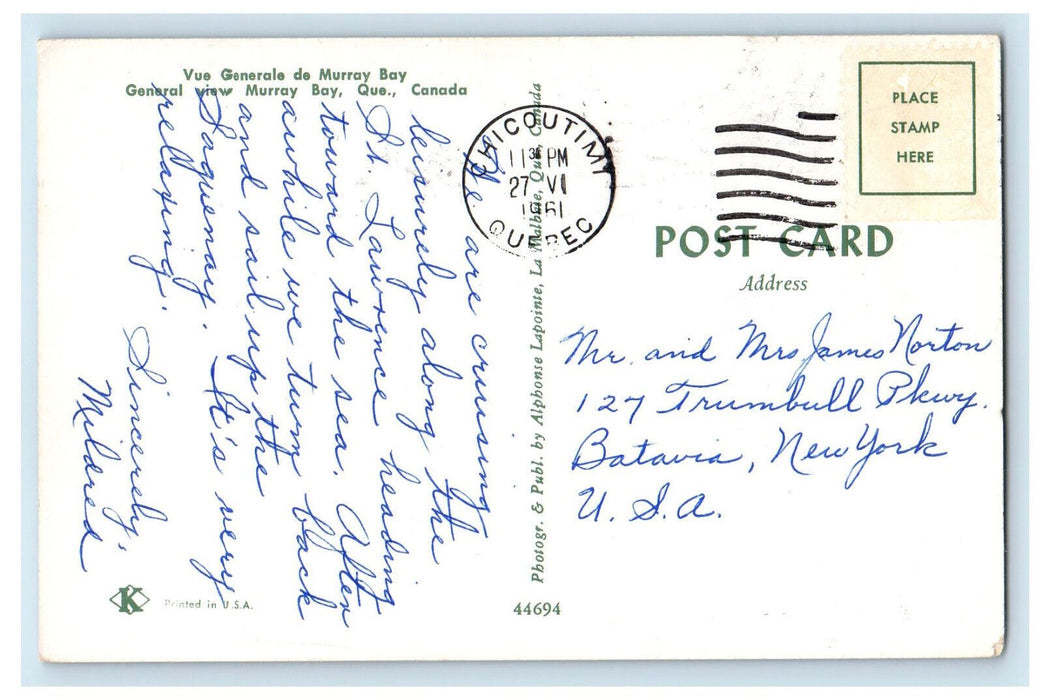 Vue Generale de Murray Bay
General view Murray Bay, Que., Canada
We are cruising
leisurely along the
St. Lawrence heading
toward the sea. After
awhile we turn back
and sail up the
Saguenay. It's very
relaxing.
Sincerely,
Mildred
K
Printed in U.S.A.
44694
Photogr. & Publ. by Alphonse Lapointe, La Malbaie, Que., Canada
CHICOUTIMI
11 30 PM
27 VI
1961
QUEBEC
PLACE
STAMP
HERE
POST CARD
Address
Mr. and Mrs James Norton
127 Trumbull Pkwy.
Batavia, New York
U.S.A.